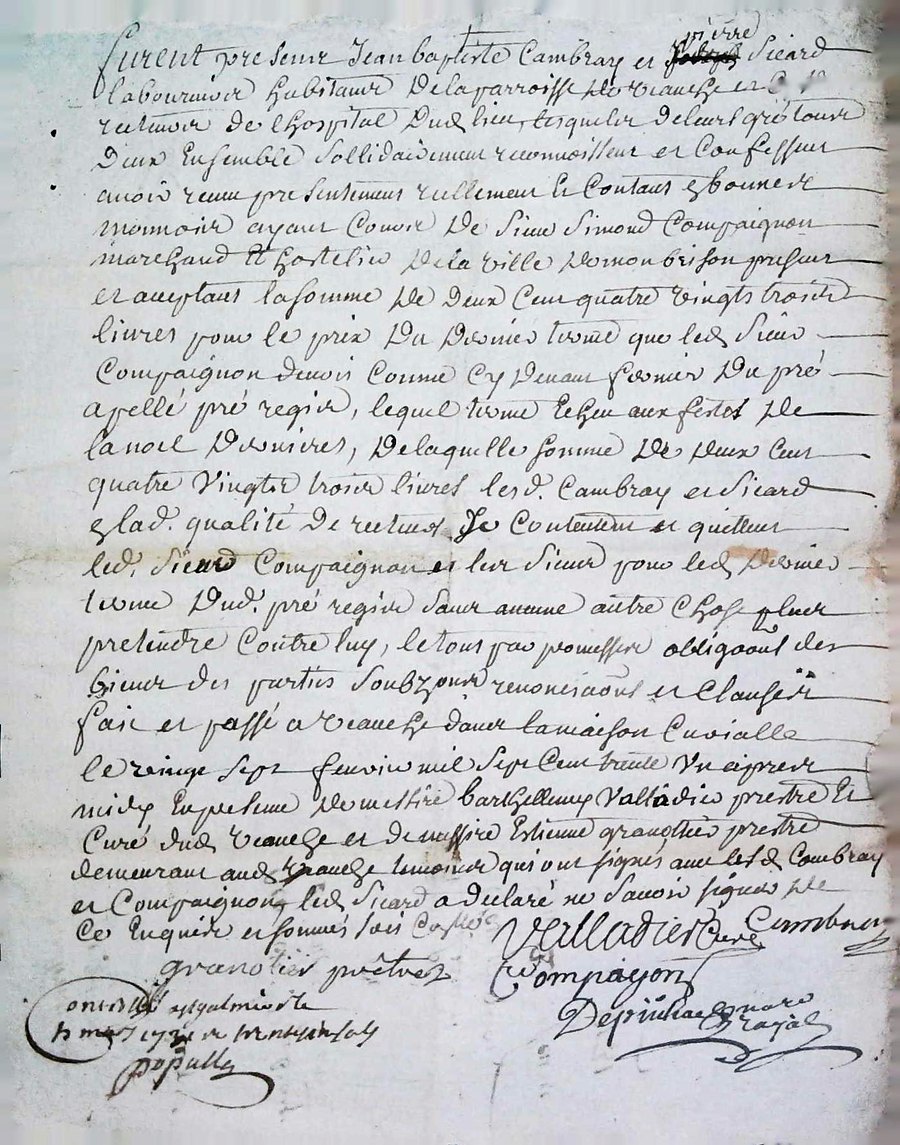 pierre
furent presens Jean baptiste Cambray et Sicard
laboureurs habitants de la parroisse de veauche et
recteurs de lhospital dud lieu, lesquels de leurs grés tous
deux Ensemble sollidairement reconnoissent et Confessent
avoir receu presentement reellement et Contant en bonnes
monnoies ayant Cours de sieur Simond Compaignon
marchand et hostelier de la ville de monbrison present
et aceptant la somme de deux Cent quatre vingts trois
livres pour le prix du dernier terme que led sieur
Compaignon devois Comme Cy devant fermier du pré
apellé pré regier, lequel terme Echeu aux festes de
la noel dernieres, de laquelle somme de deux Cent
quatre vingts trois livres lesd. Cambray et Sicard
lad. qualité de recteurs se Contentent et quittent
led. Compaignon et les siens pour led dernier
terme dud. pré regier sans aucune autre Chose plus
pretendre Contre luy, le tous par promesses obligaons des
biens des parties soubz renonciaons et Clauses
fait et passé a veauche dans la maison Curialle
le vingt sept fevrier mil sept Cent trante un apres
midy En presence de messire barthellemy Valladier prestre Et
Curé dud veauche et de messire Estienne granottier prestre
demeurant aud veauche temoins qui ont signés avec lesd Cambray
et Compaignon, led Sicard a declaré ne savoir signer de
Ce Enquis et sommés
Valladier Curé Cambray
granotier prêtre
Compagon